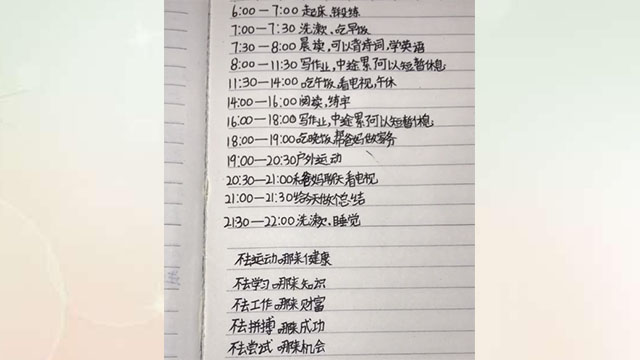 6:00—7:00 起床,锻练
7:00—7:30 洗漱,吃早饭
7:30—8:00 晨读,可以背诗词,学英语
8:00—11:30 写作业,中途累了可以短暂休息
11:30—14:00 吃午饭,看电视,午休
14:00—16:00 阅读,练字
16:00—18:00 写作业,中途累了可以短暂休息
18:00—19:00 吃晚饭,帮爸妈做家务
19:00—20:30 户外运动
20:30—21:00 和爸妈聊天看电视
21:00—21:30 给今天做个总结
21:30—22:00 洗漱,睡觉
不去运动,哪来健康
不去学习,哪来知识
不去工作,哪来财富
不去拼搏,哪来成功
不去尝试,哪来机会